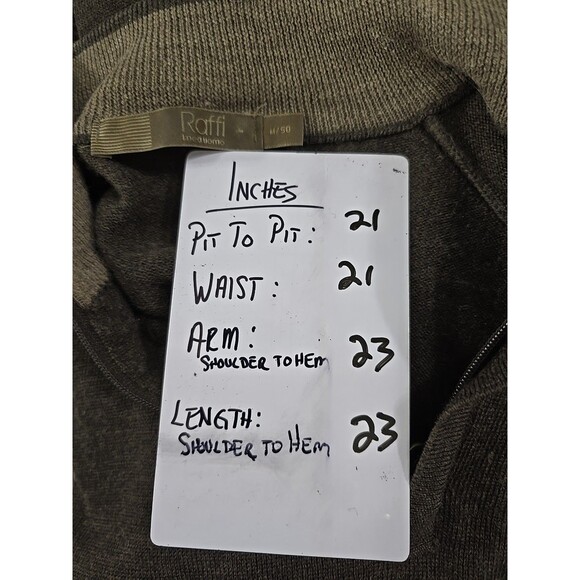 Raffi
M/50
INCHES
PIT TO PIT: 21
WAIST: 21
ARM:
SHOULDER TO HEM 23
LENGTH:
SHOULDER TO HEM 23